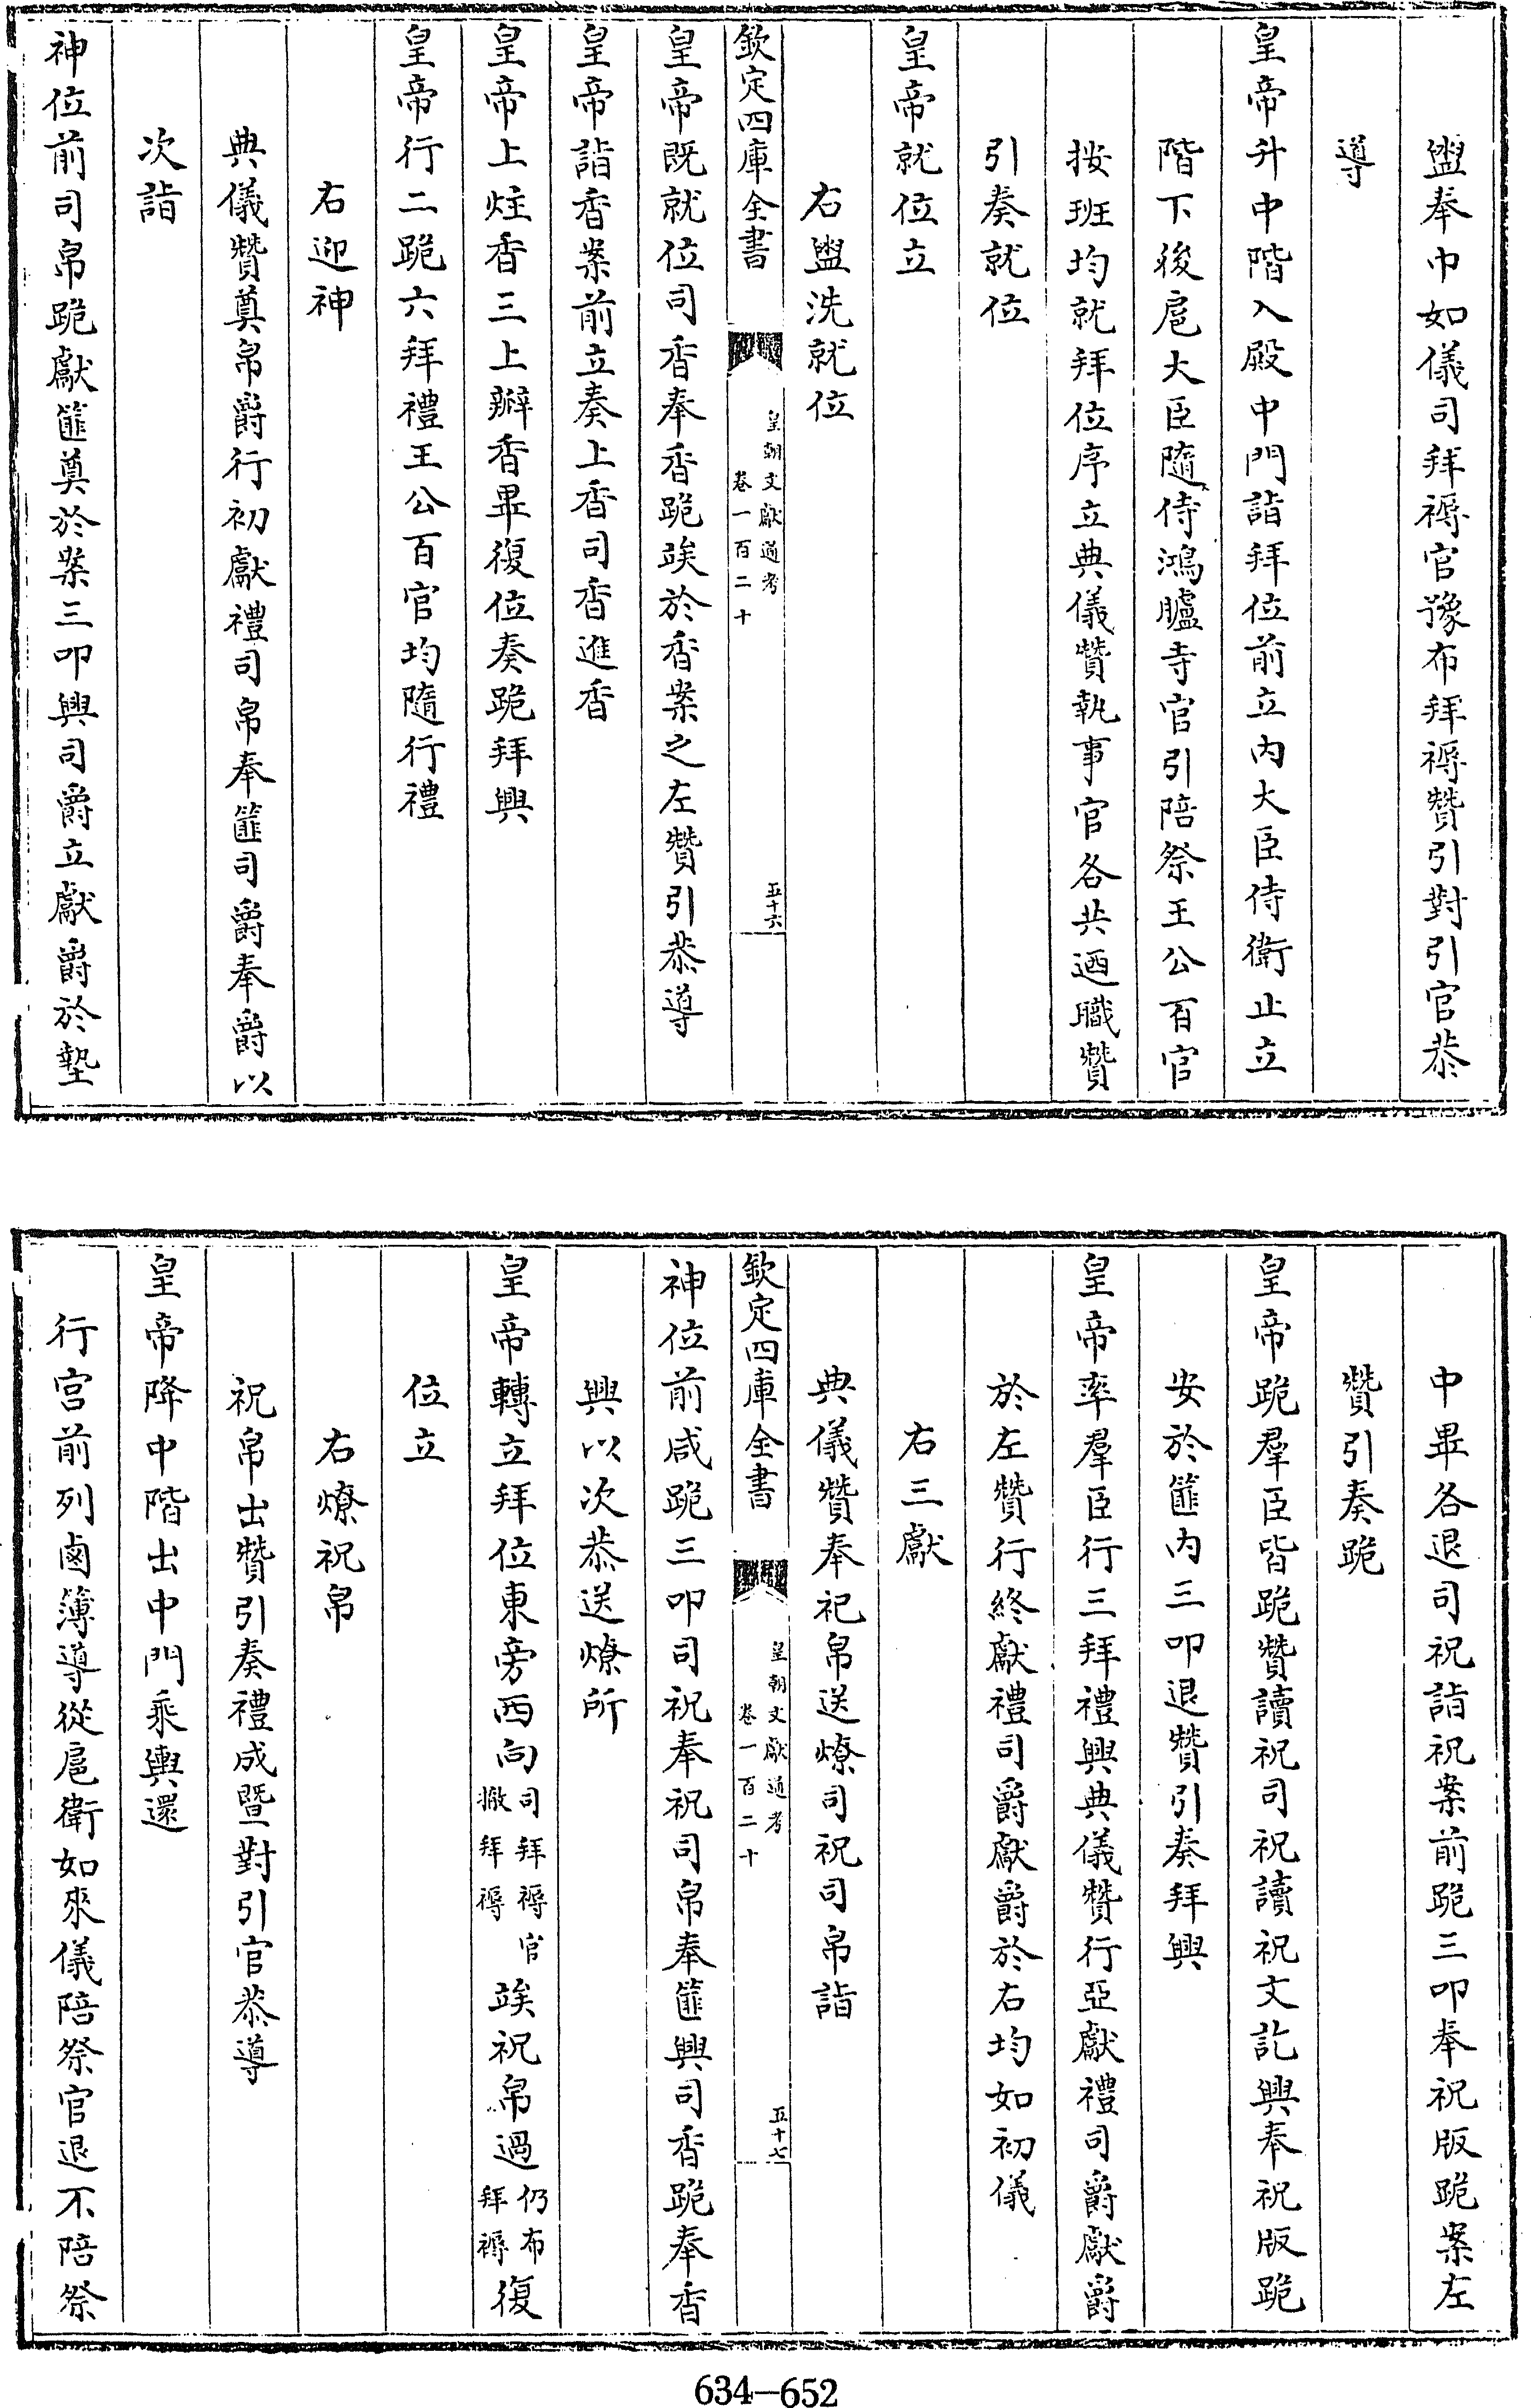 盥奉巾如儀司拜褥官豫布拜褥贊引對引官恭
導
皇帝升中階入殿中門詣拜位前立内大臣侍衛止立
階下後扈大臣隨侍鴻臚寺官引陪祭王公百官
按班均就拜位序立典儀贊執事官各共迺職贊
引奏就位
皇帝就位立
右盥洗就位
欽定四庫全書
皇朝文獻通考
卷一百二十
五十六
皇帝既就位司香奉香跪竢於香案之左贊引恭導
皇帝詣香案前立奏上香司香進香
皇帝上炷香三上瓣香畢復位奏跪拜興
皇帝行二跪六拜禮王公百官均隨行禮
右迎神
典儀贊奠帛爵行初獻禮司帛奉篚司爵奉爵以
次詣
神位前司帛跪獻篚奠於案三叩興司爵立獻爵於墊
中畢各退司祝詣祝案前跪三叩奉祝版跪案左
贊引奏跪
皇帝跪羣臣皆跪贊讀祝司祝讀祝文訖興奉祝版跪
安於篚内三叩退贊引奏拜興
皇帝率羣臣行三拜禮興典儀贊行亞獻禮司爵獻爵
於左贊行終獻禮司爵獻爵於右均如初儀
右三獻
典儀贊奉祀帛送燎司祝司帛詣
欽定四庫全書
皇朝文獻通考
卷一百二十
五十七
神位前咸跪三叩司祝奉祝司帛奉篚興司香跪奉香
興以次恭送燎所
皇帝轉立拜位東旁西向司拜褥官撤拜褥竢祝帛過仍布拜褥復
位立
右燎祝帛
祝帛出贊引奏禮成暨對引官恭導
皇帝降中階出中門乘輿還
行宫前列鹵簿導從扈衛如來儀陪祭官退不陪祭
634—652